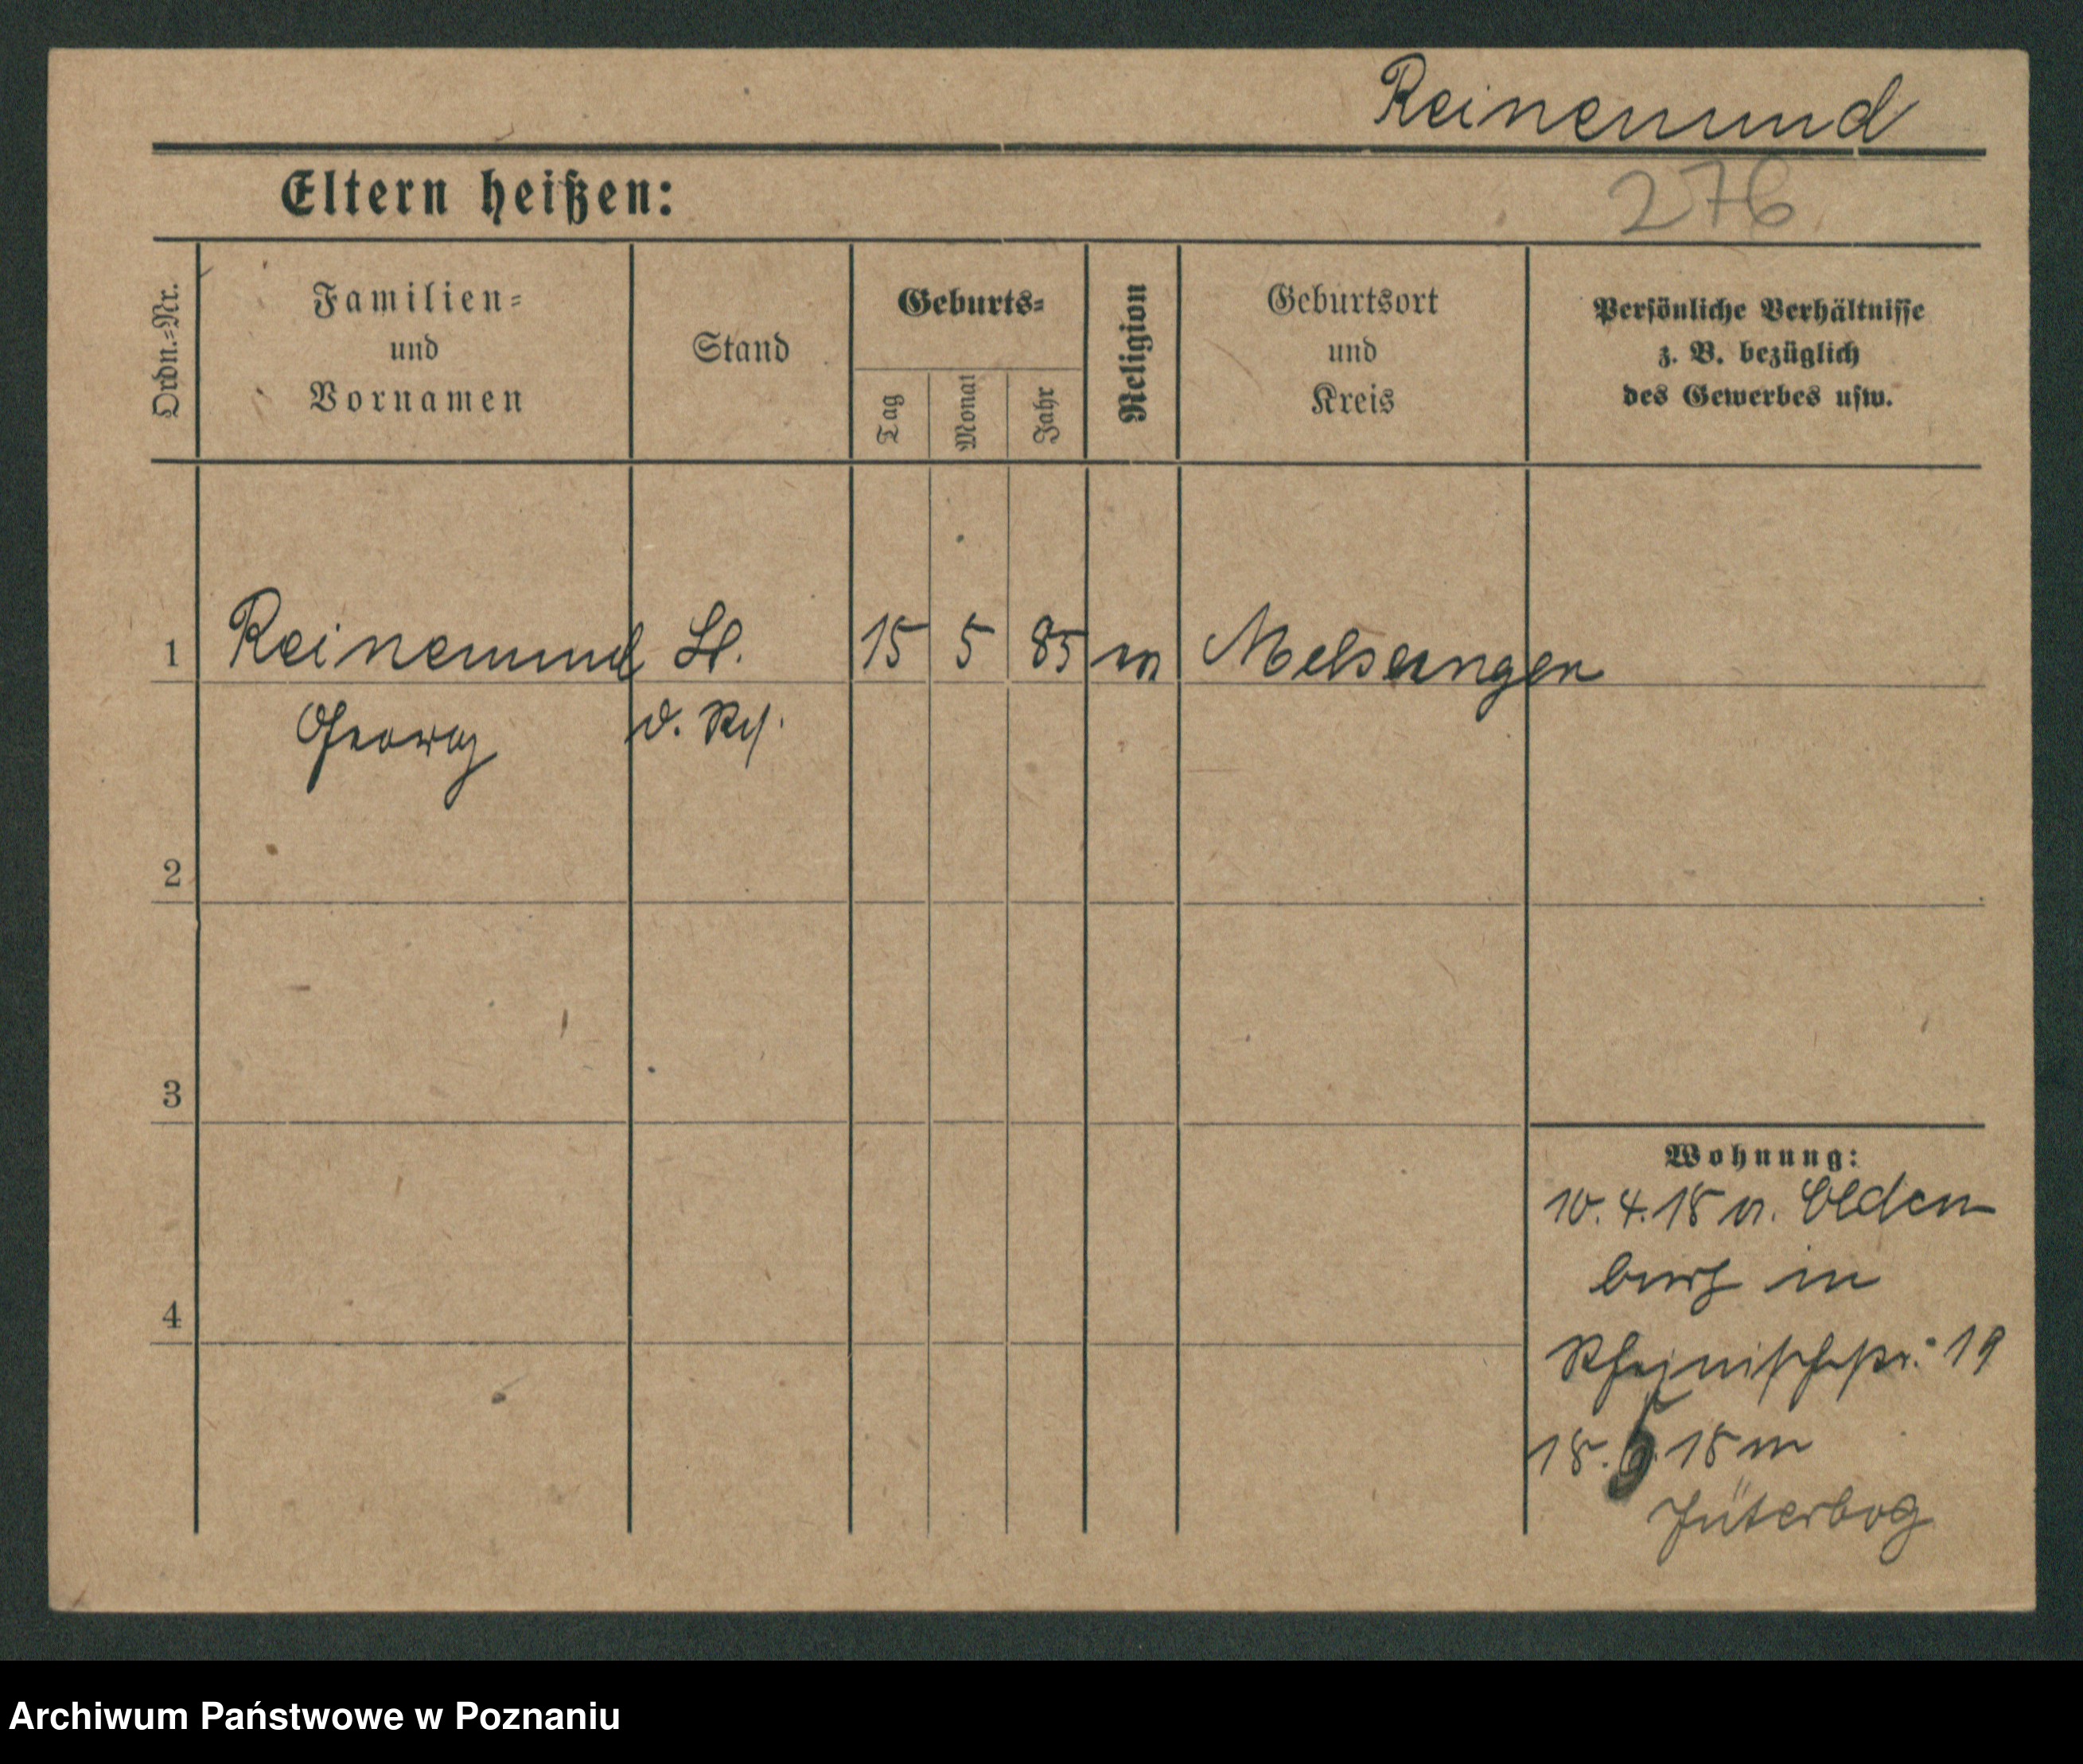 Reinemund
Eltern heißen:
276
Ordn.=Nr.
Familien=
und
Vornamen
Stand
Geburts=
Tag
Monat
Jahr
Religion
Geburtsort
und
Kreis
Persönliche Verhältnisse
z. B. bezüglich
des Gewerbes usw.
1 Reinemund Lt. 15 5 85 Melsungen
Georg d. Rs.
2
3
4
Wohnung:
10. 4. 18 v. Olden
burg in
Rheinischestr. 19
18. 18 in
Jüterbog
Archiwum Państwowe w Poznaniu